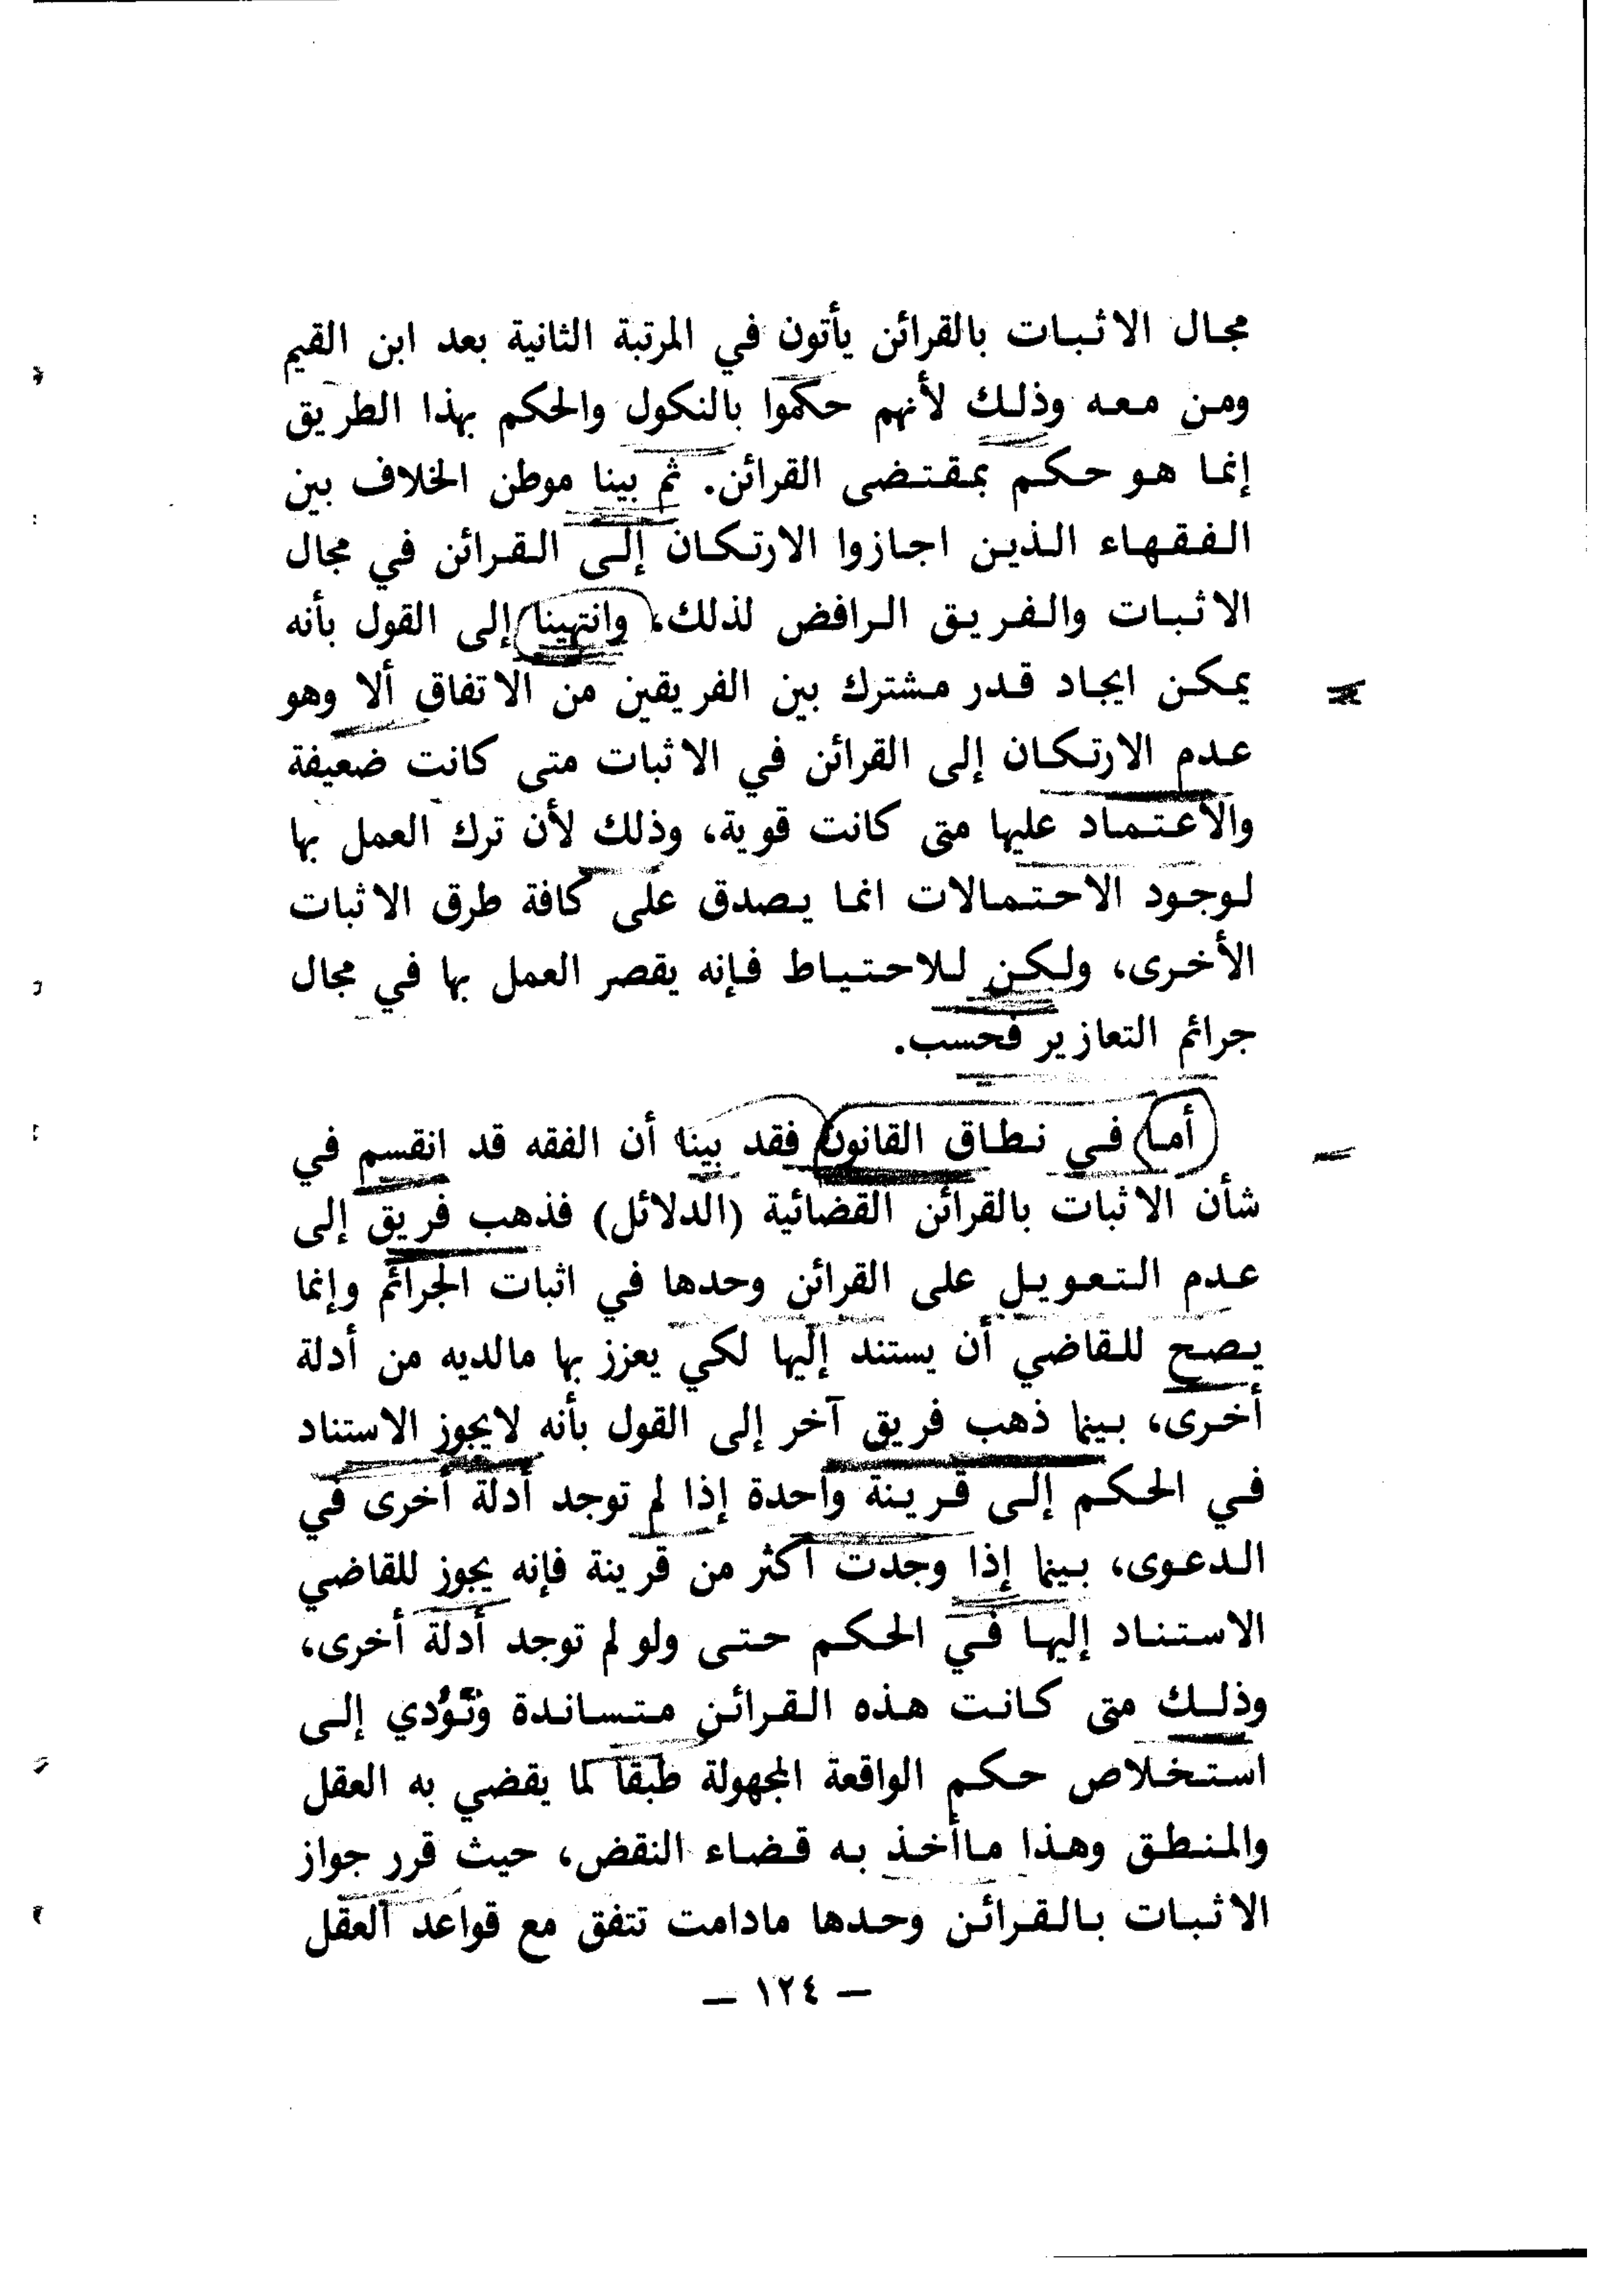 مجال الاثبات بالقرائن يأتون في المرتبة الثانية بعد ابن القيم
ومن معه وذلك لأنهم حكموا بالنكول والحكم بهذا الطريق
إنما هو حكم بمقتضى القرائن. ثم بينا موطن الخلاف بين
الفقهاء الذين اجازوا الارتكان إلى القرائن في مجال
الاثبات والفريق الرافض لذلك، وانتهينا إلى القول بأنه
يمكن ايجاد قدر مشترك بين الفريقين من الاتفاق ألا وهو
عدم الارتكان إلى القرائن في الاثبات متى كانت ضعيفة
والاعتماد عليها متى كانت قوية، وذلك لأن ترك العمل بها
لوجود الاحتمالات انما يصدق على كافة طرق الاثبات
الأخرى، ولكن للاحتياط فإنه يقصر العمل بها في مجال
جرائم التعازير فحسب.
أما في نطاق القانون فقد بينا أن الفقه قد انقسم في
شأن الاثبات بالقرائن القضائية (الدلائل) فذهب فريق إلى
عدم التعويل على القرائن وحدها في اثبات الجرائم وإنما
يصح للقاضي أن يستند إليها لكي يعزز بها مالديه من أدلة
أخرى، بينما ذهب فريق آخر إلى القول بأنه لايجوز الاستناد
في الحكم إلى قرينة واحدة إذا لم توجد أدلة أخرى في
الدعوى، بينما إذا وجدت أكثر من قرينة فإنه يجوز للقاضي
الاستناد إليها في الحكم حتى ولو لم توجد أدلة أخرى،
وذلك متى كانت هذه القرائن متساندة وتؤدي إلى
استخلاص حكم الواقعة المجهولة طبقا لما يقضي به العقل
والمنطق وهذا ماأخذ به قضاء النقض، حيث قرر جواز
الاثبات بالقرائن وحدها مادامت تتفق مع قواعد العقل
— ١٢٤ —